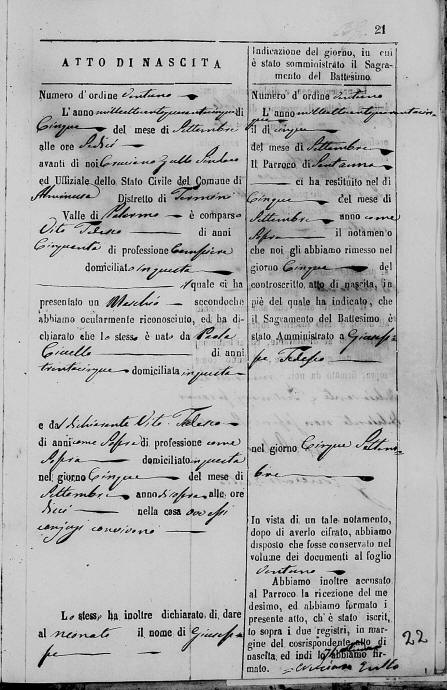 21
ATTO DI NASCITA
Numero d'ordine ventuno
L'anno milleottocentoquarantacinque di
Cinque del mese di Settembre
alle ore
avanti di noi Zullo Sindaco
ed Uffiziale dello Stato Civile del Comune di
Aluminusa Distretto di Termini
Valle di Palermo è comparso
Vito Tedesco di anni
Cinquanta di professione
domiciliato in questa
quale ci ha
presentato un Maschio secondoche
abbiamo ocularmente riconosciuto, ed ha di-
chiarato che lo stesso è nato da Paola
Ciuello di anni
trentacinque domiciliata in questa
e dal dichiarante Vito Tedesco
di anni come sopra di professione come
sopra domiciliato in questa
nel giorno Cinque del mese di
Settembre anno di sopra alle ore
dieci nella casa ove essi
conjugi convivono
Lo stesso ha inoltre dichiarato di dare
al neonato il nome di Giusep-
pe
Indicazione del giorno, in cui
è stato somministrato il Sagra-
mento del Battesimo.
Numero d'ordine ventuno
L'anno milleottocentoquarantacin-
que il dì cinque
del mese di Settembre
Il Parroco di Santanna
ci ha restituito nel dì
Cinque del mese di
Settembre anno come
sopra il notamento
che noi gli abbiamo rimesso nel
giorno Cinque del
controscritto, atto di nascita, in
piè del quale ha indicato, che
il Sagramento del Battesimo è
stato Amministrato a Giusep-
pe Tedesco
nel giorno Cinque Settem-
bre
In vista di un tale notamento,
dopo di averlo cifrato, abbiamo
disposto che fosse conservato nel
volume dei documenti al foglio
ventuno
Abbiamo inoltre accusato
al Parroco la ricezione del me
desimo, ed abbiamo formato i
presente atto, ch' è stato iscrit,
to sopra i due registri, in mar-
gine del corispondente atto di
nascita, ed indi lo abbiamo fir-
mato. Zullo
22